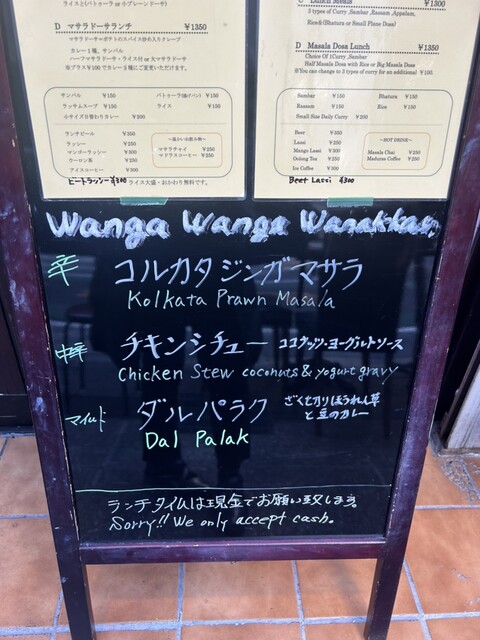 (パトゥーラ or 小プレーンドーサ)
D マサラドーサランチ ￥1350
マサラドーサ=ポテトのスパイス炒め入りクレープ
カレー1種, サンバル
ハーフマサラドーサ・ライス付 or 大マサラドーサ
※プラス￥100でカレー3種にご変更いただけます。
サンバル ￥150 バトゥーラ(揚げパン) ￥150
ラッサムスープ ￥150 ライス ￥150
小サイズ日替わりカレー ￥200
ランチビール ￥350
ラッシー ￥250
マンゴーラッシー ￥300
ウーロン茶 ￥250
アイスコーヒー ￥300
～温かいお飲み物～
マサラチャイ ￥250
マドラスコーヒー ￥250
ビートラッシー ￥300
ライス大盛・おかわり無料です。
C Dinner Meals ￥1300
3 types of Curry ,Sambar ,Rasam ,Appalam,
Rice&(Bhatura or Small Plane Dosa)
D Masala Dosa Lunch ￥1350
Choice Of 1Curry ,Sambar
Half Masala Dosa with Rice or Big Masala Dosa
※You can change to 3 types of curry for an additional ￥100.
Sambar ￥150 Bhatura ￥150
Rassom ￥150 Rice ￥150
Small Size Daily Curry ￥200
Beer ￥350
Lassi ￥250
Mango Lassi ￥300
Oolong Tea ￥250
Ice Coffee ￥300
～HOT DRINK～
Masala Chai ￥250
Maduras Coffee ￥250
Beet Lassi ￥300
Wanga Wanga Wanakkam
辛 コルカタジンガマサラ
Kolkata Prawn Masala
中辛 チキンシチュー ココナッツ・ヨーグルトソース
Chicken Stew coconuts & yogurt gravy
マイルド ダルパラク ざく切りほうれん草と豆のカレー
Dal Palak
ランチタイムは現金でお願い致します。
Sorry!! We only accept cash.